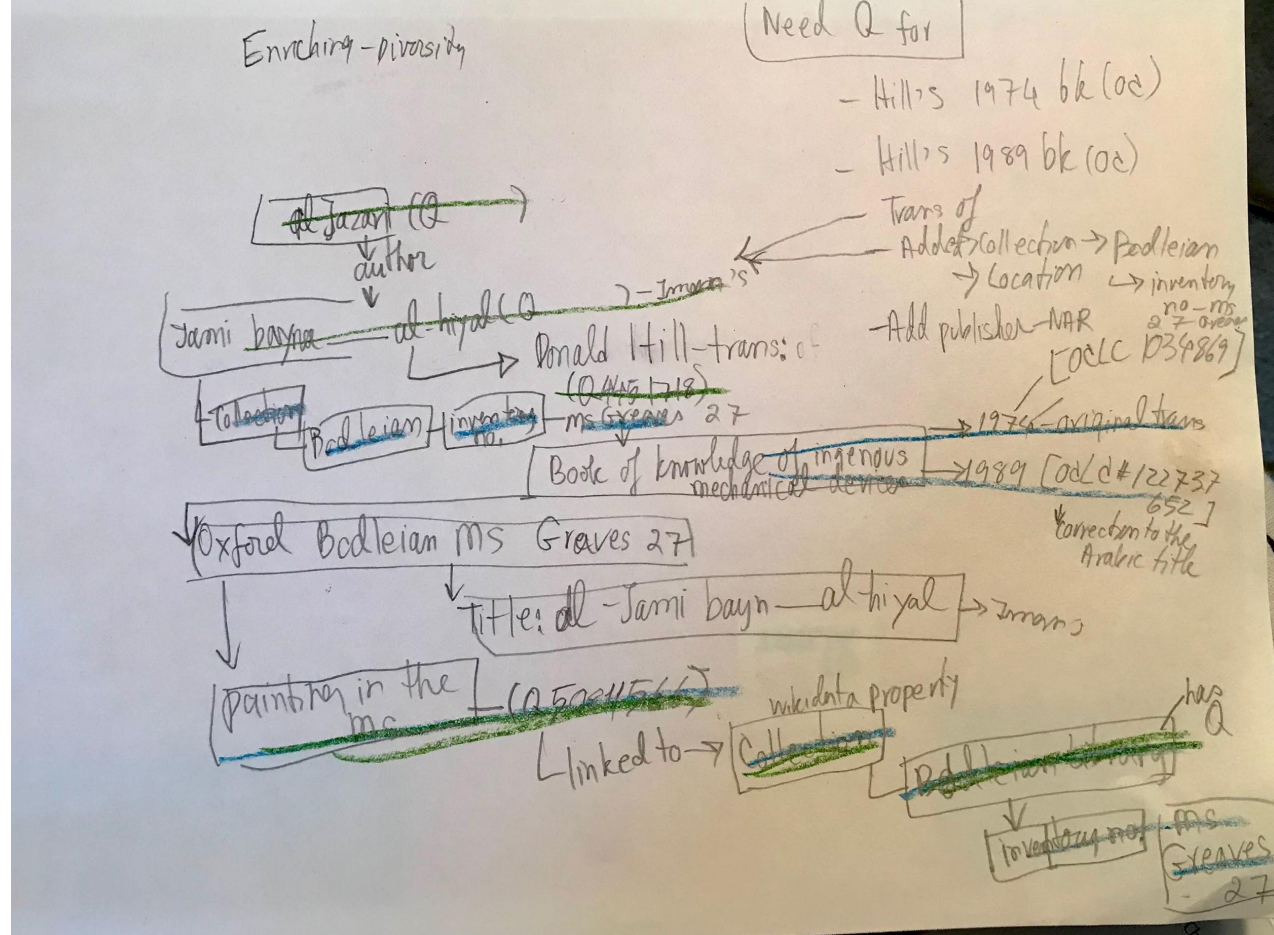 Enriching-Diversity
Need Q for
- Hill's 1974 bk (oc)
- Hill's 1989 bk (oc)
Trans of
- Added → Collection → Bodleian
→ Location ↳ inventory
no - ms
27
- Add publisher - NAR
[OCLC 1034869]
al Jazari (Q )
author
Jami bayna — al-hiyal (Q ) - Imran's
Donald Hill - trans: of
(Q4451718)
Collection
Bodleian - inventory no. - ms Greaves 27
→ 1974 - original trans
Book of knowledge of ingenous
mechanical devices
→ 1989 [OCLC # 122737
652]
correction to the
Arabic title
Oxford Bodleian ms Greaves 27
Title: al-Jami bayn — al-hiyal →
painting in the
ms - 
wikidata property
linked to → Collection
has
Q
Bodleian Library
inventory no. ms
Greaves
27